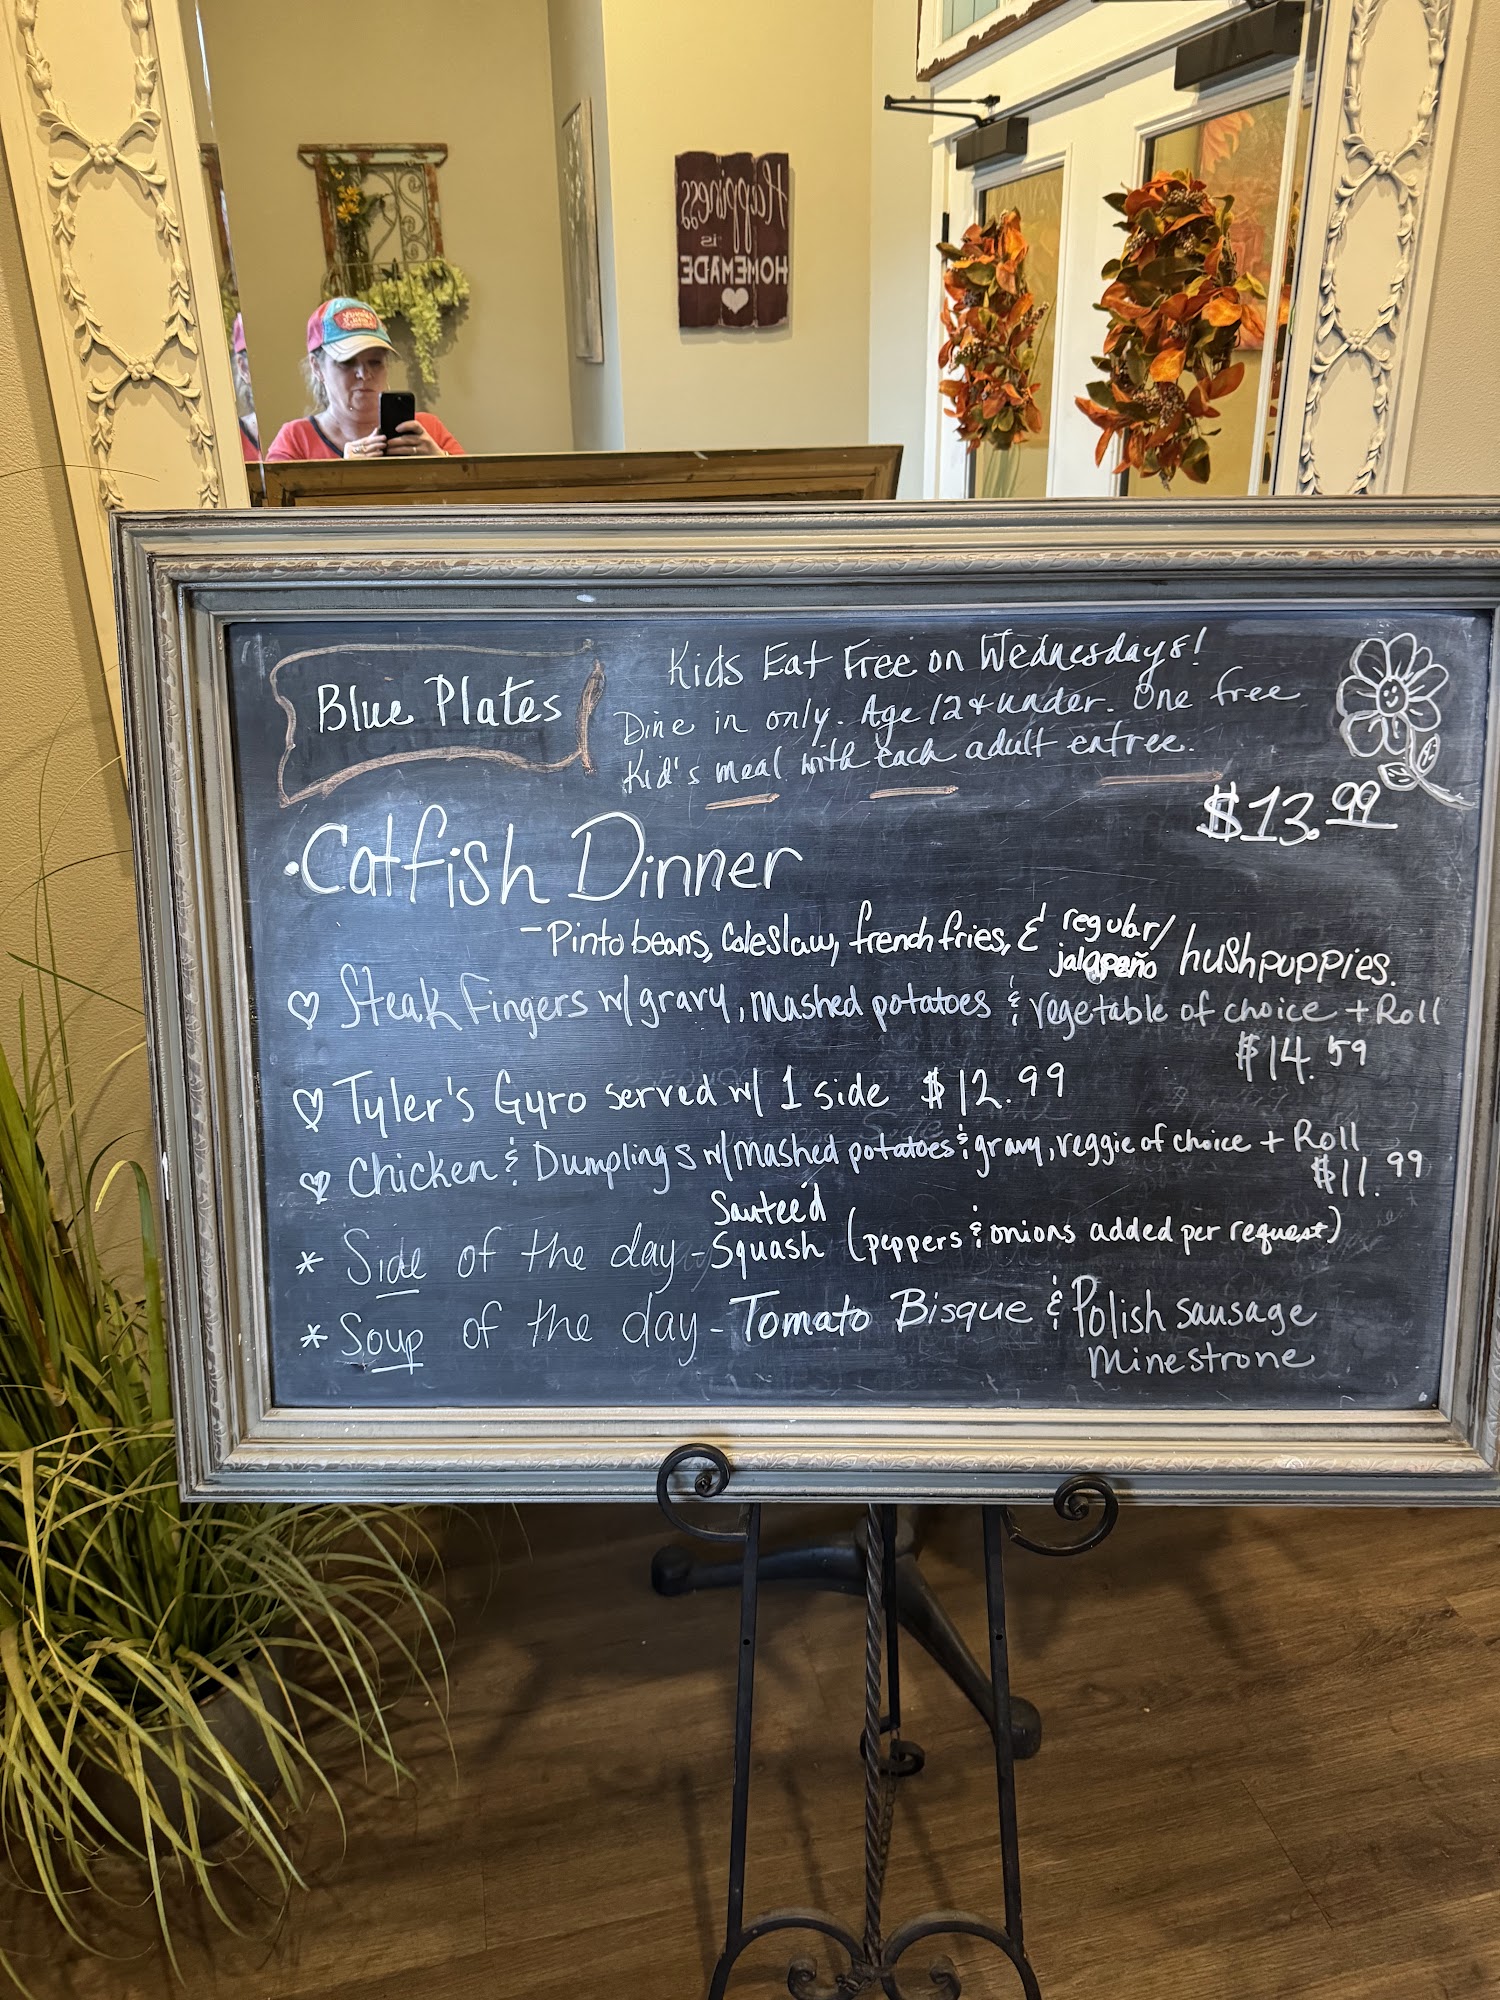 Happiness
is
HOMEMADE
Blue Plates
Kids Eat Free on Wednesdays!
Dine in only. Age 12 & under. One free
Kid's meal with each adult entree.
$13.99
• Catfish Dinner
- Pinto beans, Coleslaw, french fries, & regular/
jalapeño hushpuppies.
Steak Fingers w/ gravy, mashed potatoes & vegetable of choice + Roll
$14.59
Tyler's Gyro served w/ 1 side $12.99
Chicken & Dumplings w/ mashed potatoes & gravy, veggie of choice + Roll
$11.99
Sauteéd
* Side of the day - Squash (peppers & onions added per request)
* Soup of the day - Tomato Bisque & Polish sausage
Minestrone